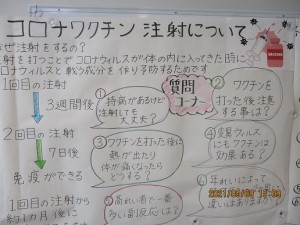 コロナワクチン 注射について
なぜ注射をするの?
注射を打つことでコロナウィルスが体の内に入ってきた時に
コロナウィルスと戦う成分を作り予防するためです
1回目の注射
3週間後
2回目の注射
7日後
免疫ができる
1回目の注射から
約1カ月後に
質問
コーナー
①持病があるけど
注射しても
大丈夫?
②ワクチンを
打った後注意
する事は?
③ワクチンを打った後に
熱が出たり
体が痛くなったら
どうする?
④変異ウィルス
にもワクチンは
効果ある?
⑤
番
多い副反応は?
⑥年れいによって
違いはあります